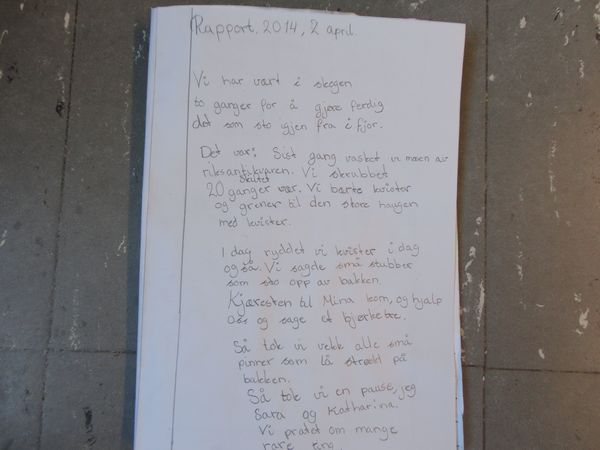 Rapport. 2014, 2 april.
Vi har vært i skogen
to ganger for å gjøre ferdig
det som sto igjen fra i fjor.
Det var: Sist gang vasket vi mosen av
riksantikvaren. Vi skrubbet
skiltet
20 ganger vær. Vi barte kvister
og grener til den store haugen
med kvister.
I dag ryddet vi kvister i dag
også. Vi sagde små stubber
som sto opp av bakken.
Kjæresten til Mina kom, og hjalp
oss og sage et bjørketre.
Så tok vi vekk alle små
pinner som lå strødd på
bakken.
Så tok vi en pause, jeg
Sara og Katharina.
Vi pratet om mange
rare ting.